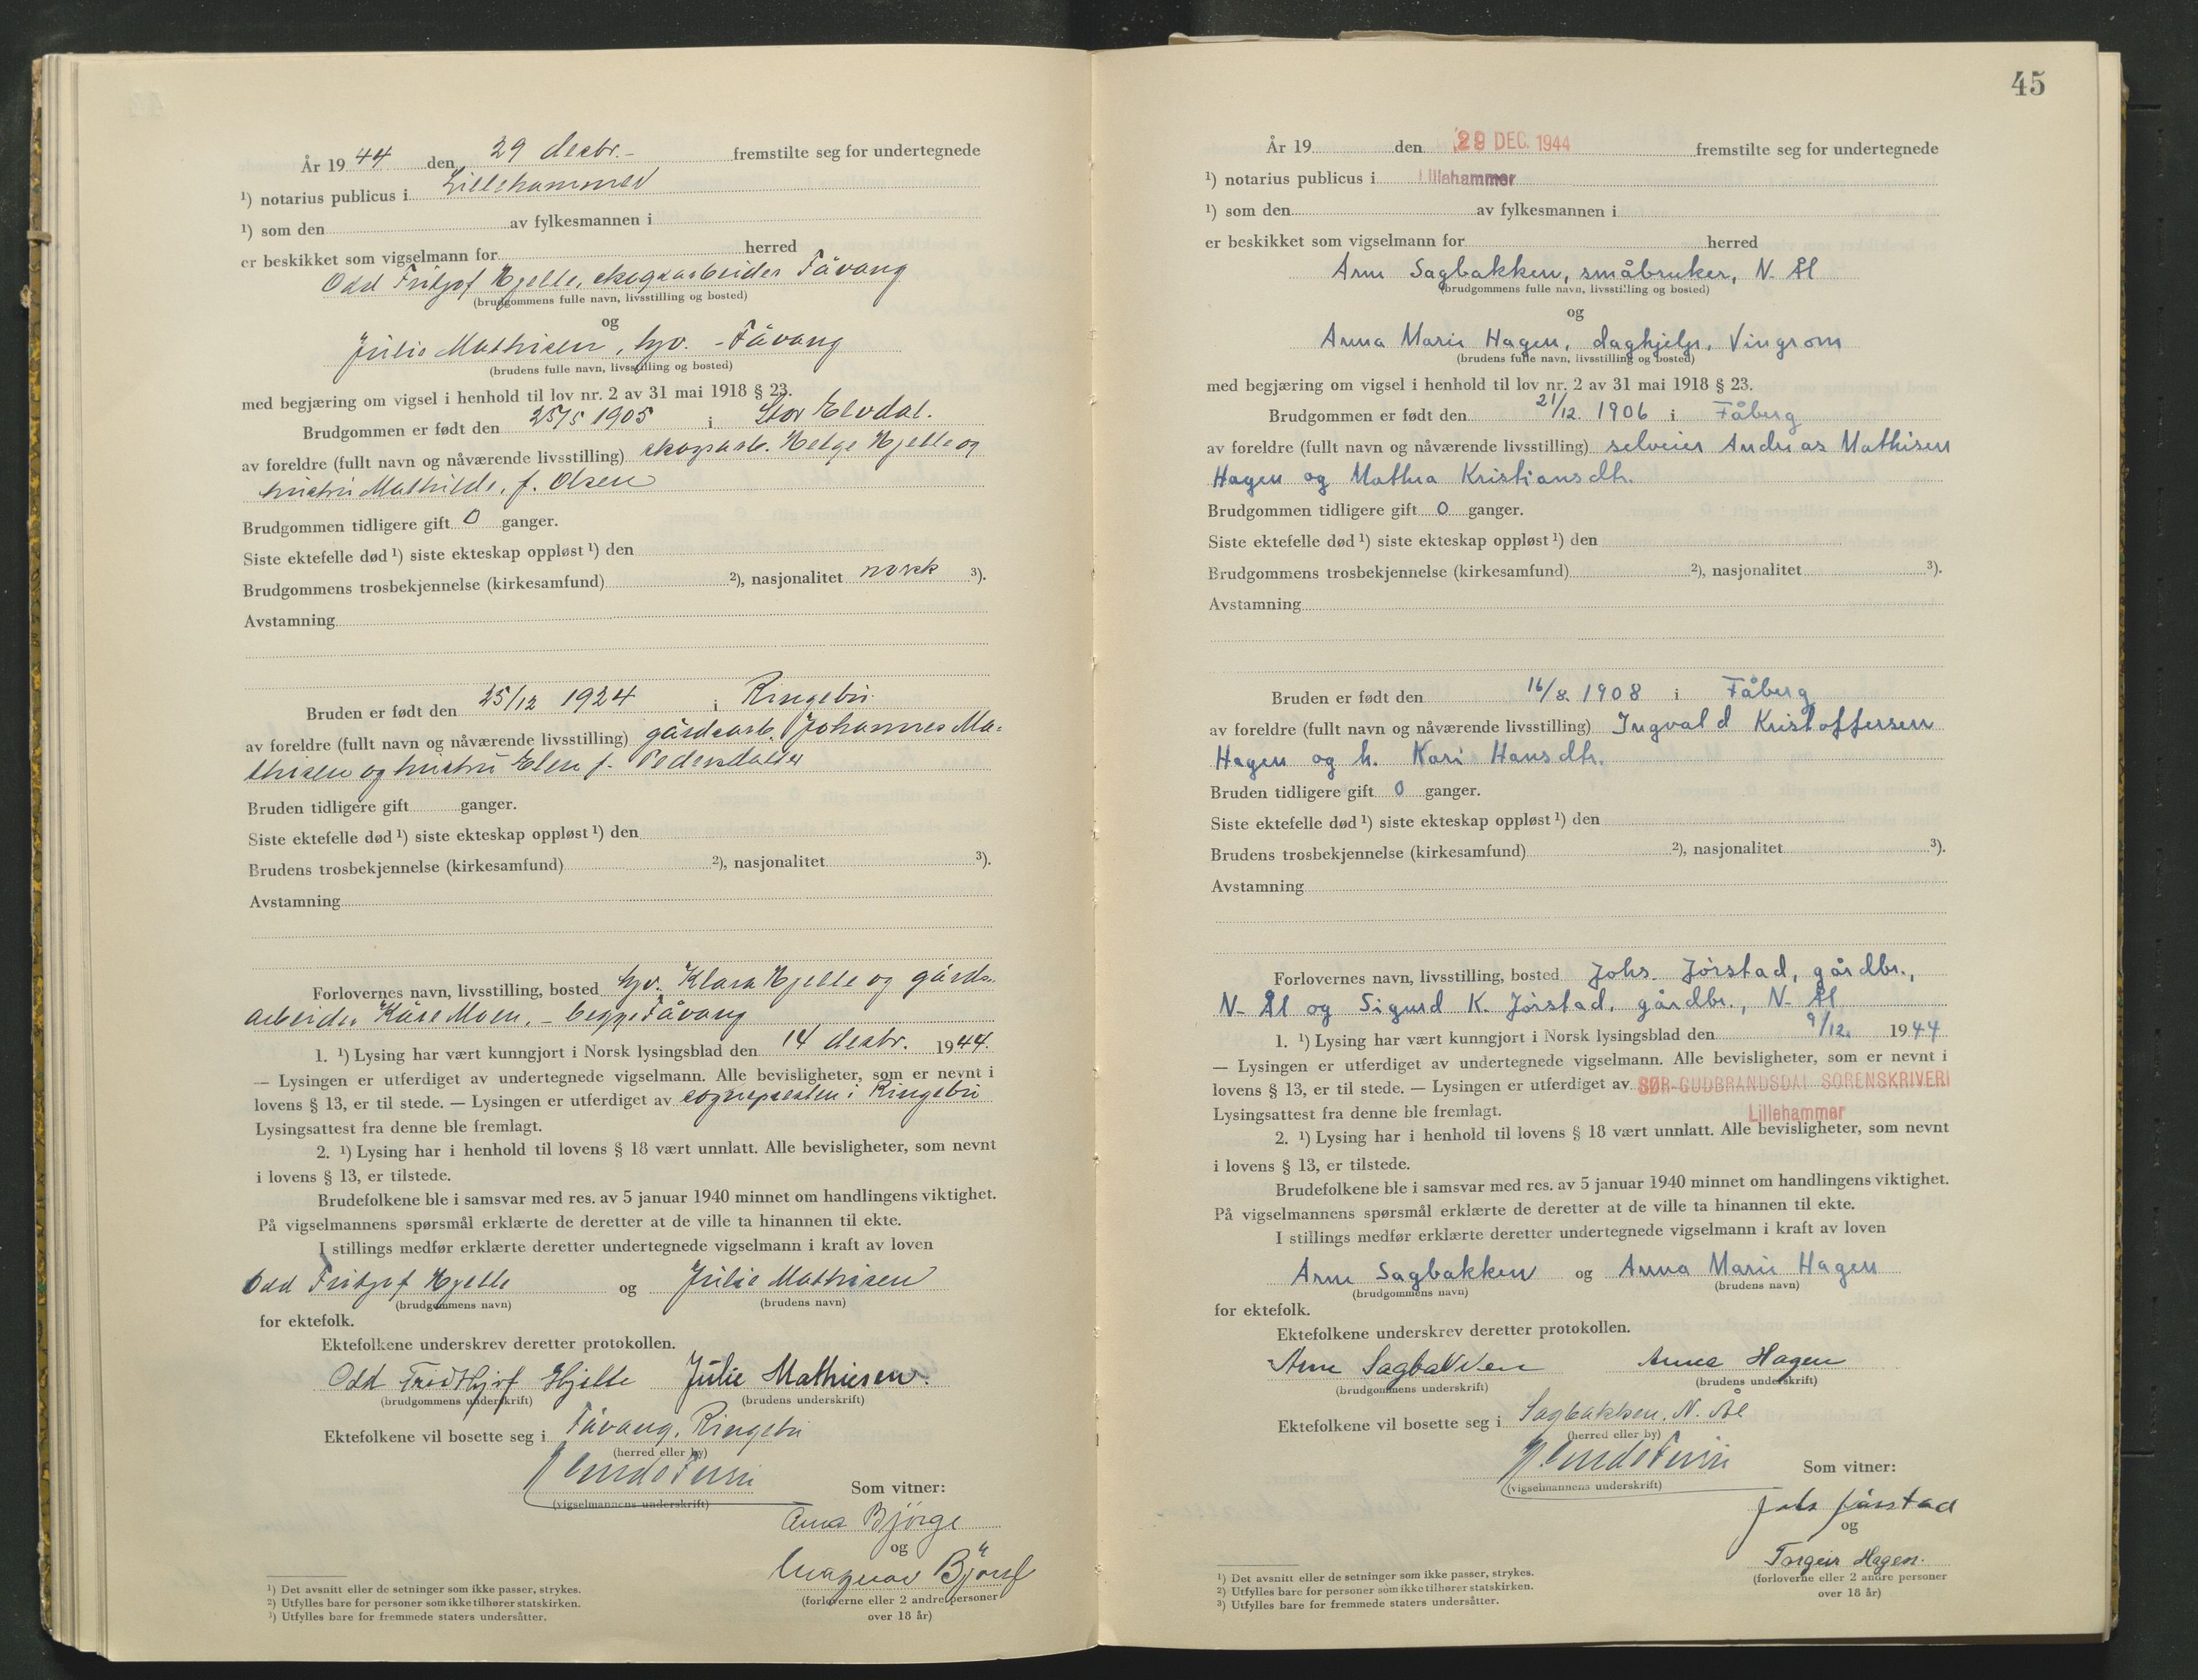 År 1944 den 29 decbr.- fremstilte seg for undertegnede
¹) notarius publicus i Lillehammer
¹) som den av fylkesmannen i
er beskikket som vigselmann for herred
Odd Fritjof Hjelle, skogsarbeider Fåvang
(brudgommens fulle navn, livsstilling og bosted)
og
Julie Mathisen, hjv. - Fåvang
(brudens fulle navn, livsstilling og bosted)
med begjæring om vigsel i henhold til lov nr. 2 av 31 mai 1918 § 23.
Brudgommen er født den 25/5 1905 i Stor Elvdal.
av foreldre (fullt navn og nåværende livsstilling) skogsarb. Helge Hjelle og
hustru Mathilde, f. Olsen
Brudgommen tidligere gift 0 ganger.
Siste ektefelle død ¹) siste ekteskap oppløst ¹) den
Brudgommens trosbekjennelse (kirkesamfund) ²), nasjonalitet norsk ³).
Avstamning
Bruden er født den 25/12 1924 i Ringebu.
av foreldre (fullt navn og nåværende livsstilling) gårdsarb. Johannes Ma-
thisen og hustru Elen f. Pedersdatter
Bruden tidligere gift ganger.
Siste ektefelle død ¹) siste ekteskap oppløst ¹) den
Brudens trosbekjennelse (kirkesamfund) ²), nasjonalitet ³).
Avstamning
Forlovernes navn, livsstilling, bosted hjv. Klara Hjelle og gårds-
arbeider Kåre Moen, - begge Fåvang
1. ¹) Lysing har vært kunngjort i Norsk lysingsblad den 14 decbr. 1944.
— Lysingen er utferdiget av undertegnede vigselmann. Alle bevisligheter, som er nevnt i
lovens § 13, er til stede. — Lysingen er utferdiget av sognepresten i Ringebu
Lysingsattest fra denne ble fremlagt.
2. ¹) Lysing har i henhold til lovens § 18 vært unnlatt. Alle bevisligheter, som nevnt
i lovens § 13, er tilstede.
Brudefolkene ble i samsvar med res. av 5 januar 1940 minnet om handlingens viktighet.
På vigselmannens spørsmål erklærte de deretter at de ville ta hinannen til ekte.
I stillings medfør erklærte deretter undertegnede vigselmann i kraft av loven
Odd Fritjof Hjelle og Julie Mathisen
(brudgommens navn) (brudens navn)
for ektefolk.
Ektefolkene underskrev deretter protokollen.
Odd Fridthjof Hjelle Julie Mathiesen.
(brudgommens underskrift) (brudens underskrift)
Ektefolkene vil bosette seg i Fåvang, Ringebu
(herred eller by)
(vigselmannens underskrift)
Som vitner:
Bjørge
og
(forloverne eller 2 andre personer
over 18 år)
¹) Det avsnitt eller de setninger som ikke passer, strykes.
²) Utfylles bare for personer som ikke tilhører statskirken.
³) Utfylles bare for fremmede staters undersåtter.
45
År 19 den 29 DEC. 1944 fremstilte seg for undertegnede
¹) notarius publicus i Lillehammer
¹) som den av fylkesmannen i
er beskikket som vigselmann for herred
Arne Sagbakken, småbruker, N. Ål
(brudgommens fulle navn, livsstilling og bosted)
og
Anna Marie Hagen, daghjelp, Vingrom
(brudens fulle navn, livsstilling og bosted)
med begjæring om vigsel i henhold til lov nr. 2 av 31 mai 1918 § 23.
Brudgommen er født den 21/12. 1906 i Fåberg
av foreldre (fullt navn og nåværende livsstilling) selveier Andreas Mathisen
Hagen og Mathea Kristiansdtr.
Brudgommen tidligere gift 0 ganger.
Siste ektefelle død ¹) siste ekteskap oppløst ¹) den
Brudgommens trosbekjennelse (kirkesamfund) ²), nasjonalitet ³).
Avstamning
Bruden er født den 16/8. 1908 i Fåberg
av foreldre (fullt navn og nåværende livsstilling) Ingvald Kristoffersen
Hagen og h. Kari Hansdtr.
Bruden tidligere gift 0 ganger.
Siste ektefelle død ¹) siste ekteskap oppløst ¹) den
Brudens trosbekjennelse (kirkesamfund) ²), nasjonalitet ³).
Avstamning
Forlovernes navn, livsstilling, bosted Johs. Jørstad, gårdbr.,
N- Ål og Sigurd K. Jørstad, gårdbr., N- Ål
1. ¹) Lysing har vært kunngjort i Norsk lysingsblad den 9/12. 1944
— Lysingen er utferdiget av undertegnede vigselmann. Alle bevisligheter, som er nevnt i
lovens § 13, er til stede. — Lysingen er utferdiget av SØR-GUDBRANDSDAL SORENSKRIVERI
Lysingsattest fra denne ble fremlagt. Lillehammer
2. ¹) Lysing har i henhold til lovens § 18 vært unnlatt. Alle bevisligheter, som nevnt
i lovens § 13, er tilstede.
Brudefolkene ble i samsvar med res. av 5 januar 1940 minnet om handlingens viktighet.
På vigselmannens spørsmål erklærte de deretter at de ville ta hinannen til ekte.
I stillings medfør erklærte deretter undertegnede vigselmann i kraft av loven
Arne Sagbakken og Anna Marie Hagen
(brudgommens navn) (brudens navn)
for ektefolk.
Ektefolkene underskrev deretter protokollen.
Arne Sagbakken Anna Hagen
(brudgommens underskrift) (brudens underskrift)
Ektefolkene vil bosette seg i Sagbakken, N. Ål
(herred eller by)
(vigselmannens underskrift)
Som vitner:
Johs Jørstad
og
Torgeir Hagen.
(forloverne eller 2 andre personer
over 18 år)
¹) Det avsnitt eller de setninger som ikke passer, strykes.
²) Utfylles bare for personer som ikke tilhører statskirken.
³) Utfylles bare for fremmede staters undersåtter.